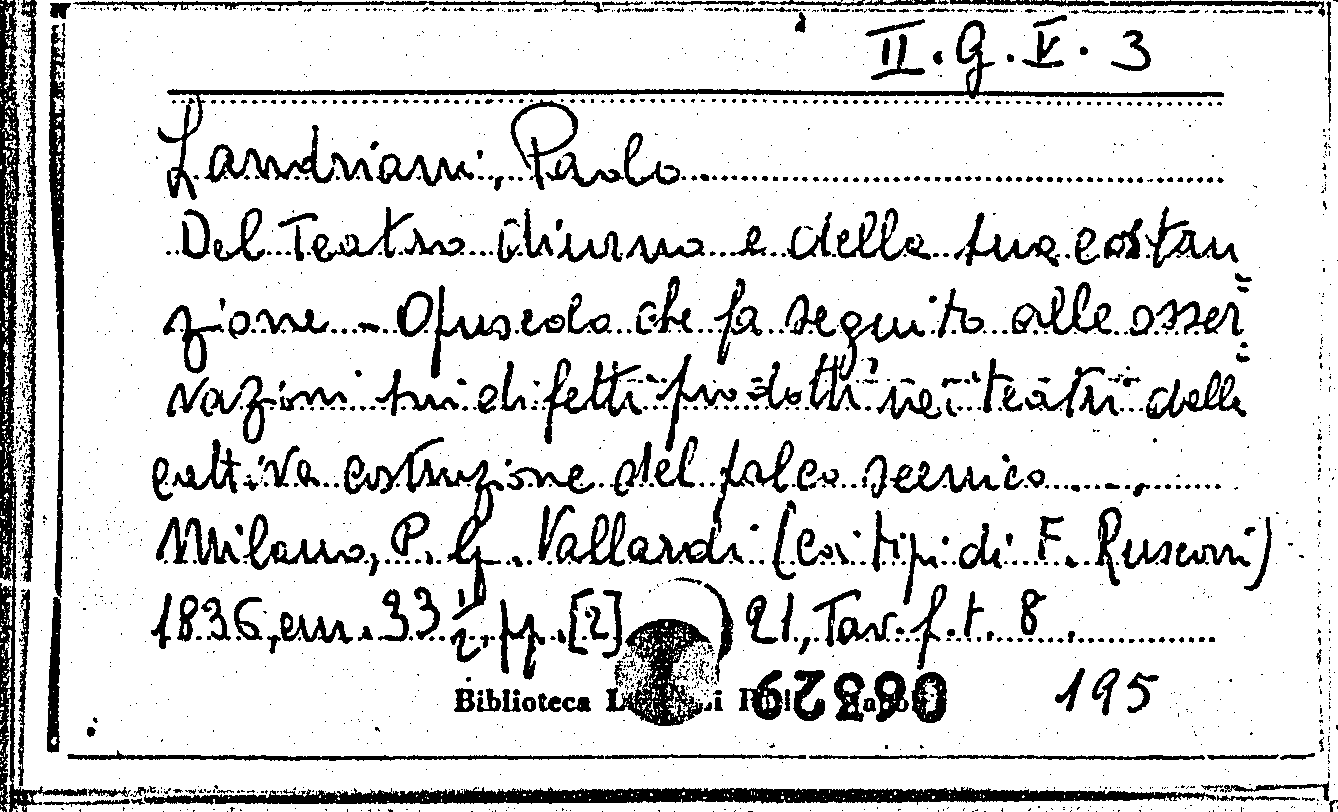 II. G. V. 3
Landriani, Paolo
Del Teatro diurno e della sua costru=
zione - Opuscolo che fa seguito alle osser=
vazioni sui difetti prodotti nei teatri dalla
cattiva costruzione del palco scenico
Milano, P. G. Vallardi (coi tipi di F. Rusconi)
1836, cm. 33 1/2, pp. [2] 21, Tav. f. t. 8
Biblioteca
06829 195